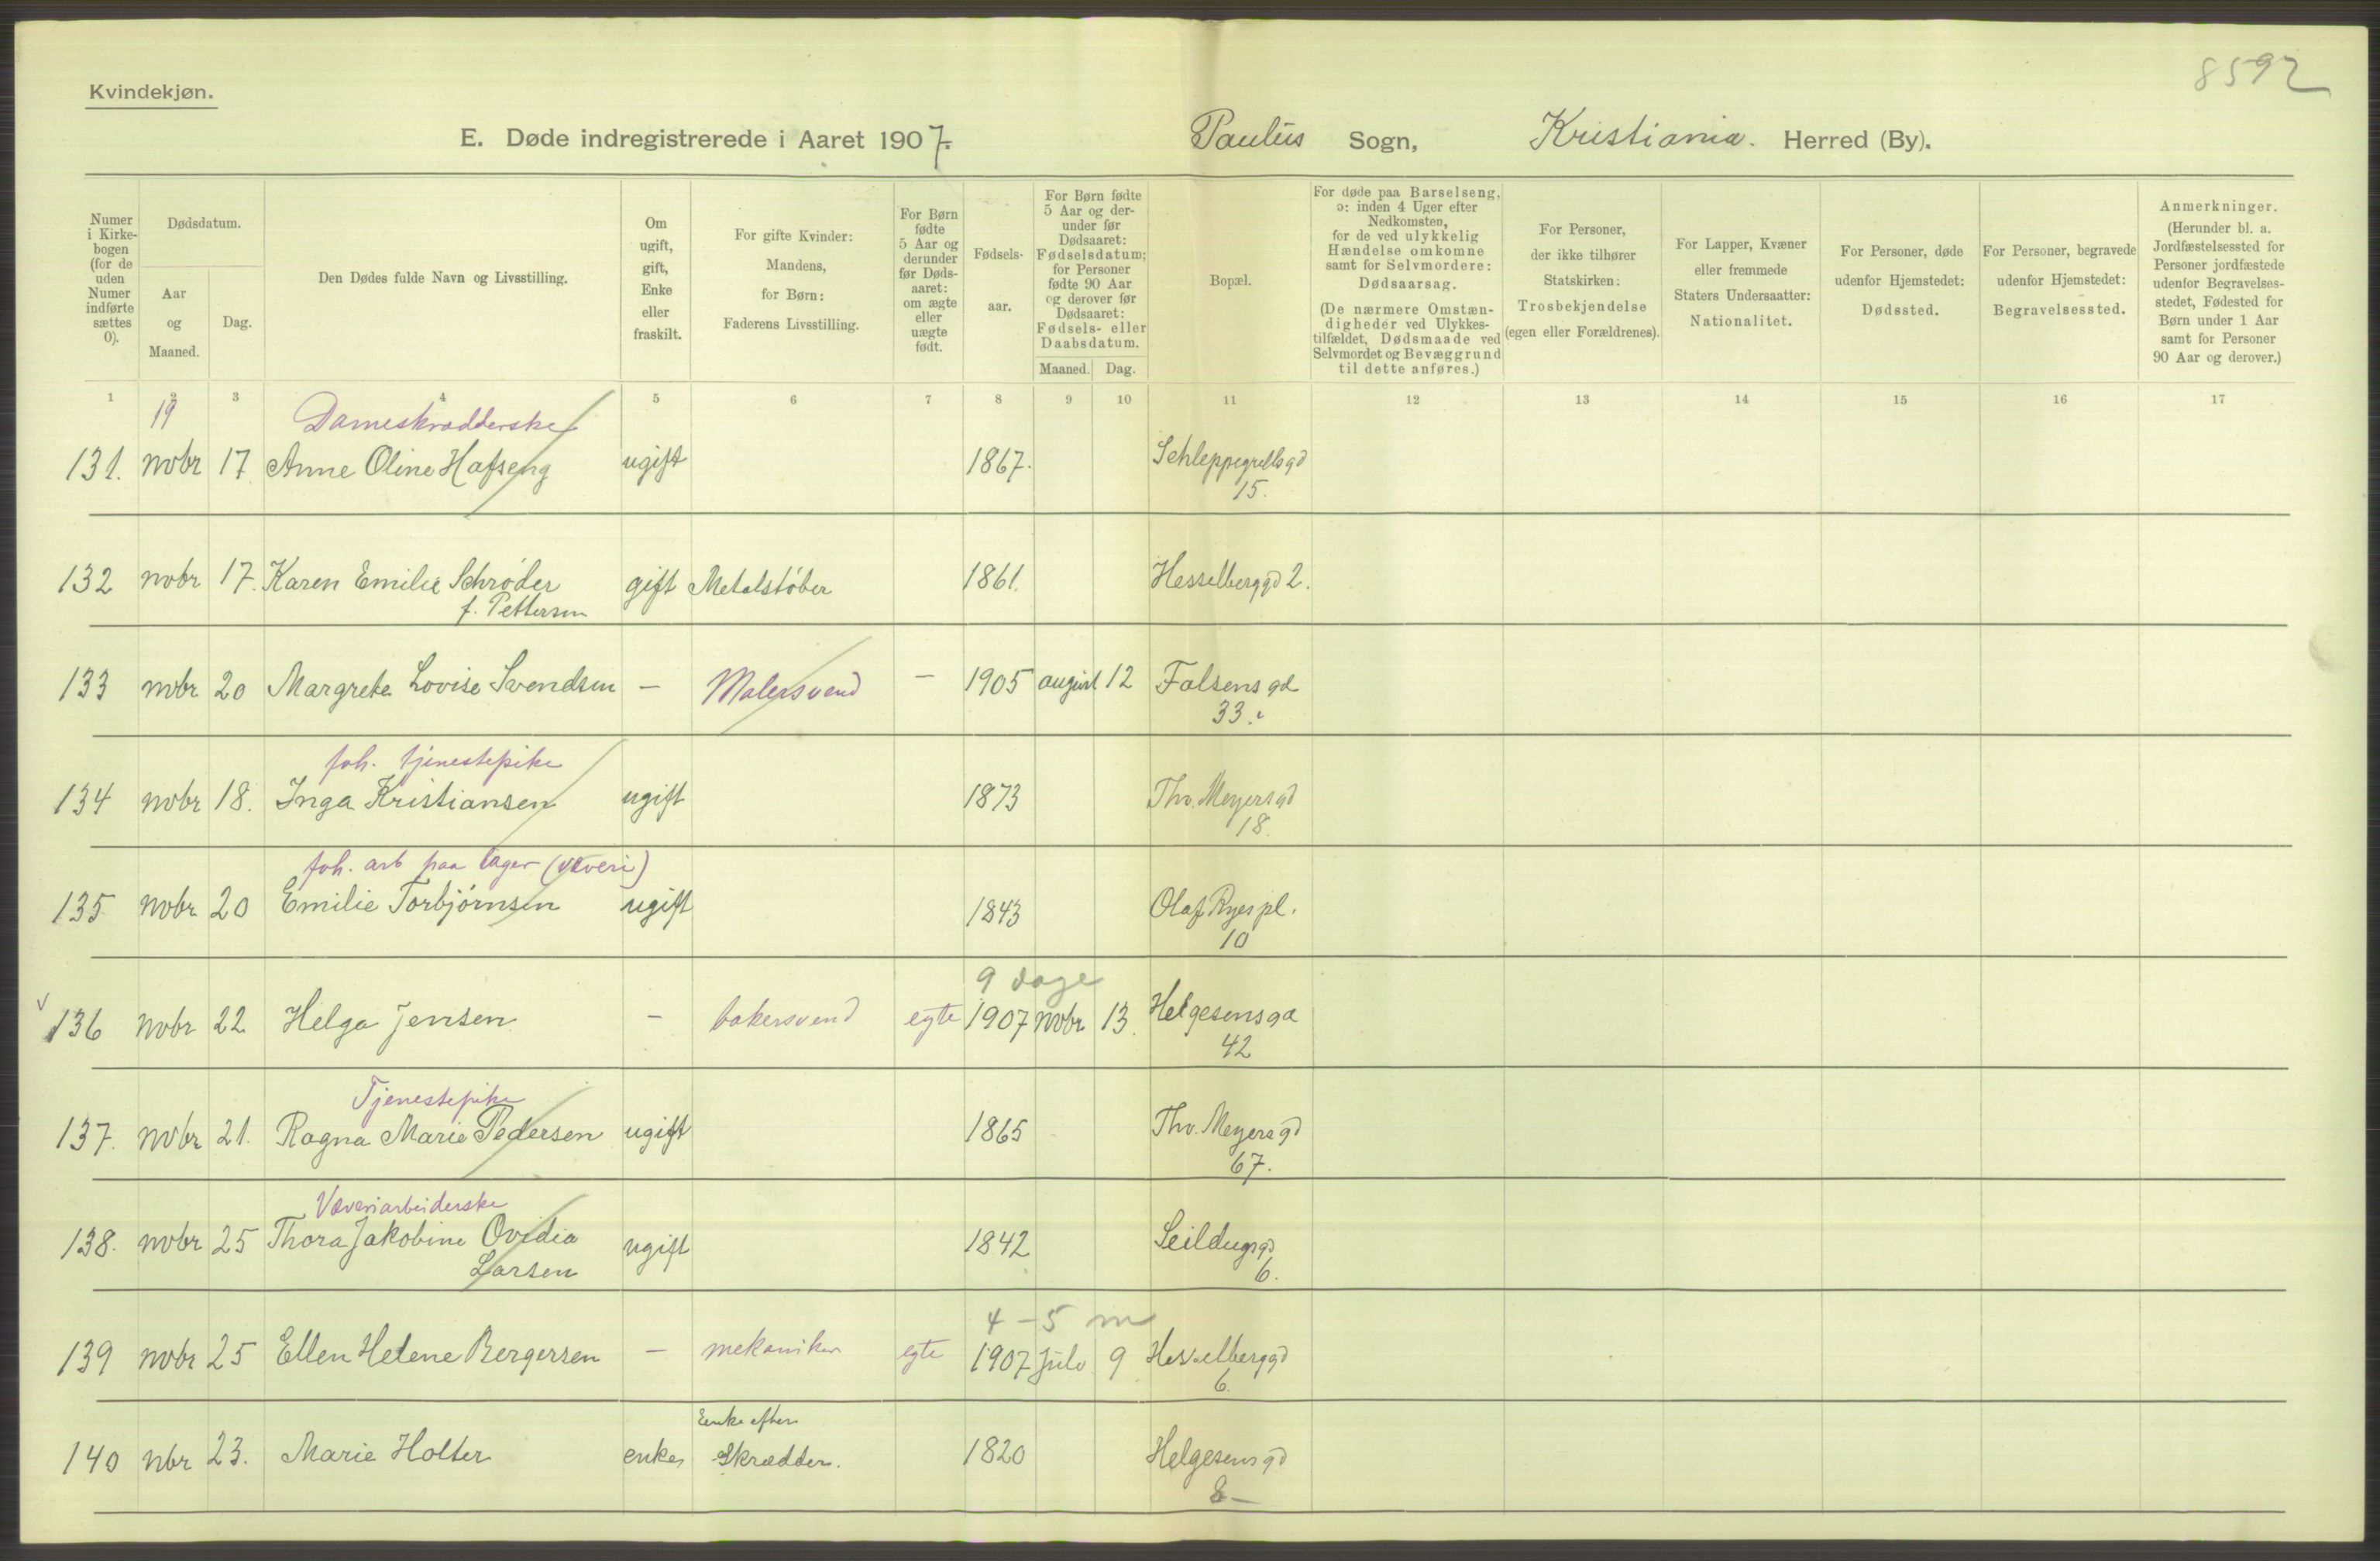 8592
Kvindekjøn.
E. Døde indregistrerede i Aaret 1907. Paulus Sogn, Kristiania. Herred (By).
Numer i Kirkebogen (for de uden Numer indførte sættes 0).
Dødsdatum.
Aar og Maaned.
Dag.
Den Dødes fulde Navn og Livsstilling.
Om ugift, gift, Enke eller fraskilt.
For gifte Kvinder: Mandens, for Børn: Faderens Livsstilling.
For Børn fødte 5 Aar og derunder før Dødsaaret: om ægte eller uægte født.
Fødselsaar.
For Børn fødte 5 Aar og derunder før Dødsaaret: Fødselsdatum; for Personer fødte 90 Aar og derover før Dødsaaret: Fødsels- eller Daabsdatum.
Maaned. Dag.
Bopæl.
For døde paa Barselseng, ɔ: inden 4 Uger efter Nedkomsten, for de ved ulykkelig Hændelse omkomne samt for Selvmordere: Dødsaarsag.
(De nærmere Omstændigheder ved Ulykkestilfældet, Dødsmaade ved Selvmordet og Bevæggrund til dette anføres.)
For Personer, der ikke tilhører Statskirken: Trosbekjendelse (egen eller Forældrenes).
For Lapper, Kvæner eller fremmede Staters Undersaatter: Nationalitet.
For Personer, døde udenfor Hjemstedet: Dødssted.
For Personer, begravede udenfor Hjemstedet: Begravelsessted.
Anmerkninger.
(Herunder bl. a. Jordfæstelsessted for Personer jordfæstede udenfor Begravelsesstedet, Fødested for Børn under 1 Aar samt for Personer 90 Aar og derover.)
1 2 3 4 5 6 7 8 9 10 11 12 13 14 15 16 17
19 Dameskrædderske
131. novbr 17 Anne Oline Hafseng ugift 1867. Schleppegrellsgd
15.
132 novbr 17. Karen Emilie Schrøder gift Metalstøber 1861. Hesselberggd 2.
f. Pettersen
133 novbr 20 Margrete Lovise Svendsen — Malersvend — 1905 august 12 Falsens gd
33.
foh. tjenestepike
134 novbr 18. Inga Kristiansen ugift 1873 Thv. Meyers gd
18.
foh. arb paa lager (væveri)
135 novbr 20 Emilie Torbjørnsen ugift 1843 Olaf Ryes pl.
10
9 dage
136 novbr 22 Helga Jensen — bakersvend egte 1907 novbr 13. Helgesens gd
42
Tjenestepike
137. novbr 21. Ragna Marie Pedersen ugift 1865 Thv. Meyers gd
67.
Væveriarbeiderske
138. novbr 25 Thora Jakobine Ovidia ugift 1842 Seildugsgd
Larsen 6.
4 – 5 m
139 novbr 25 Ellen Helene Bergersen — mekaniker egte 1907 Juli 9 Hesselberggd
6.
Enke efter
140 nbr 23. Marie Holter enke Skrædder. 1820 Helgesens gd
8 —